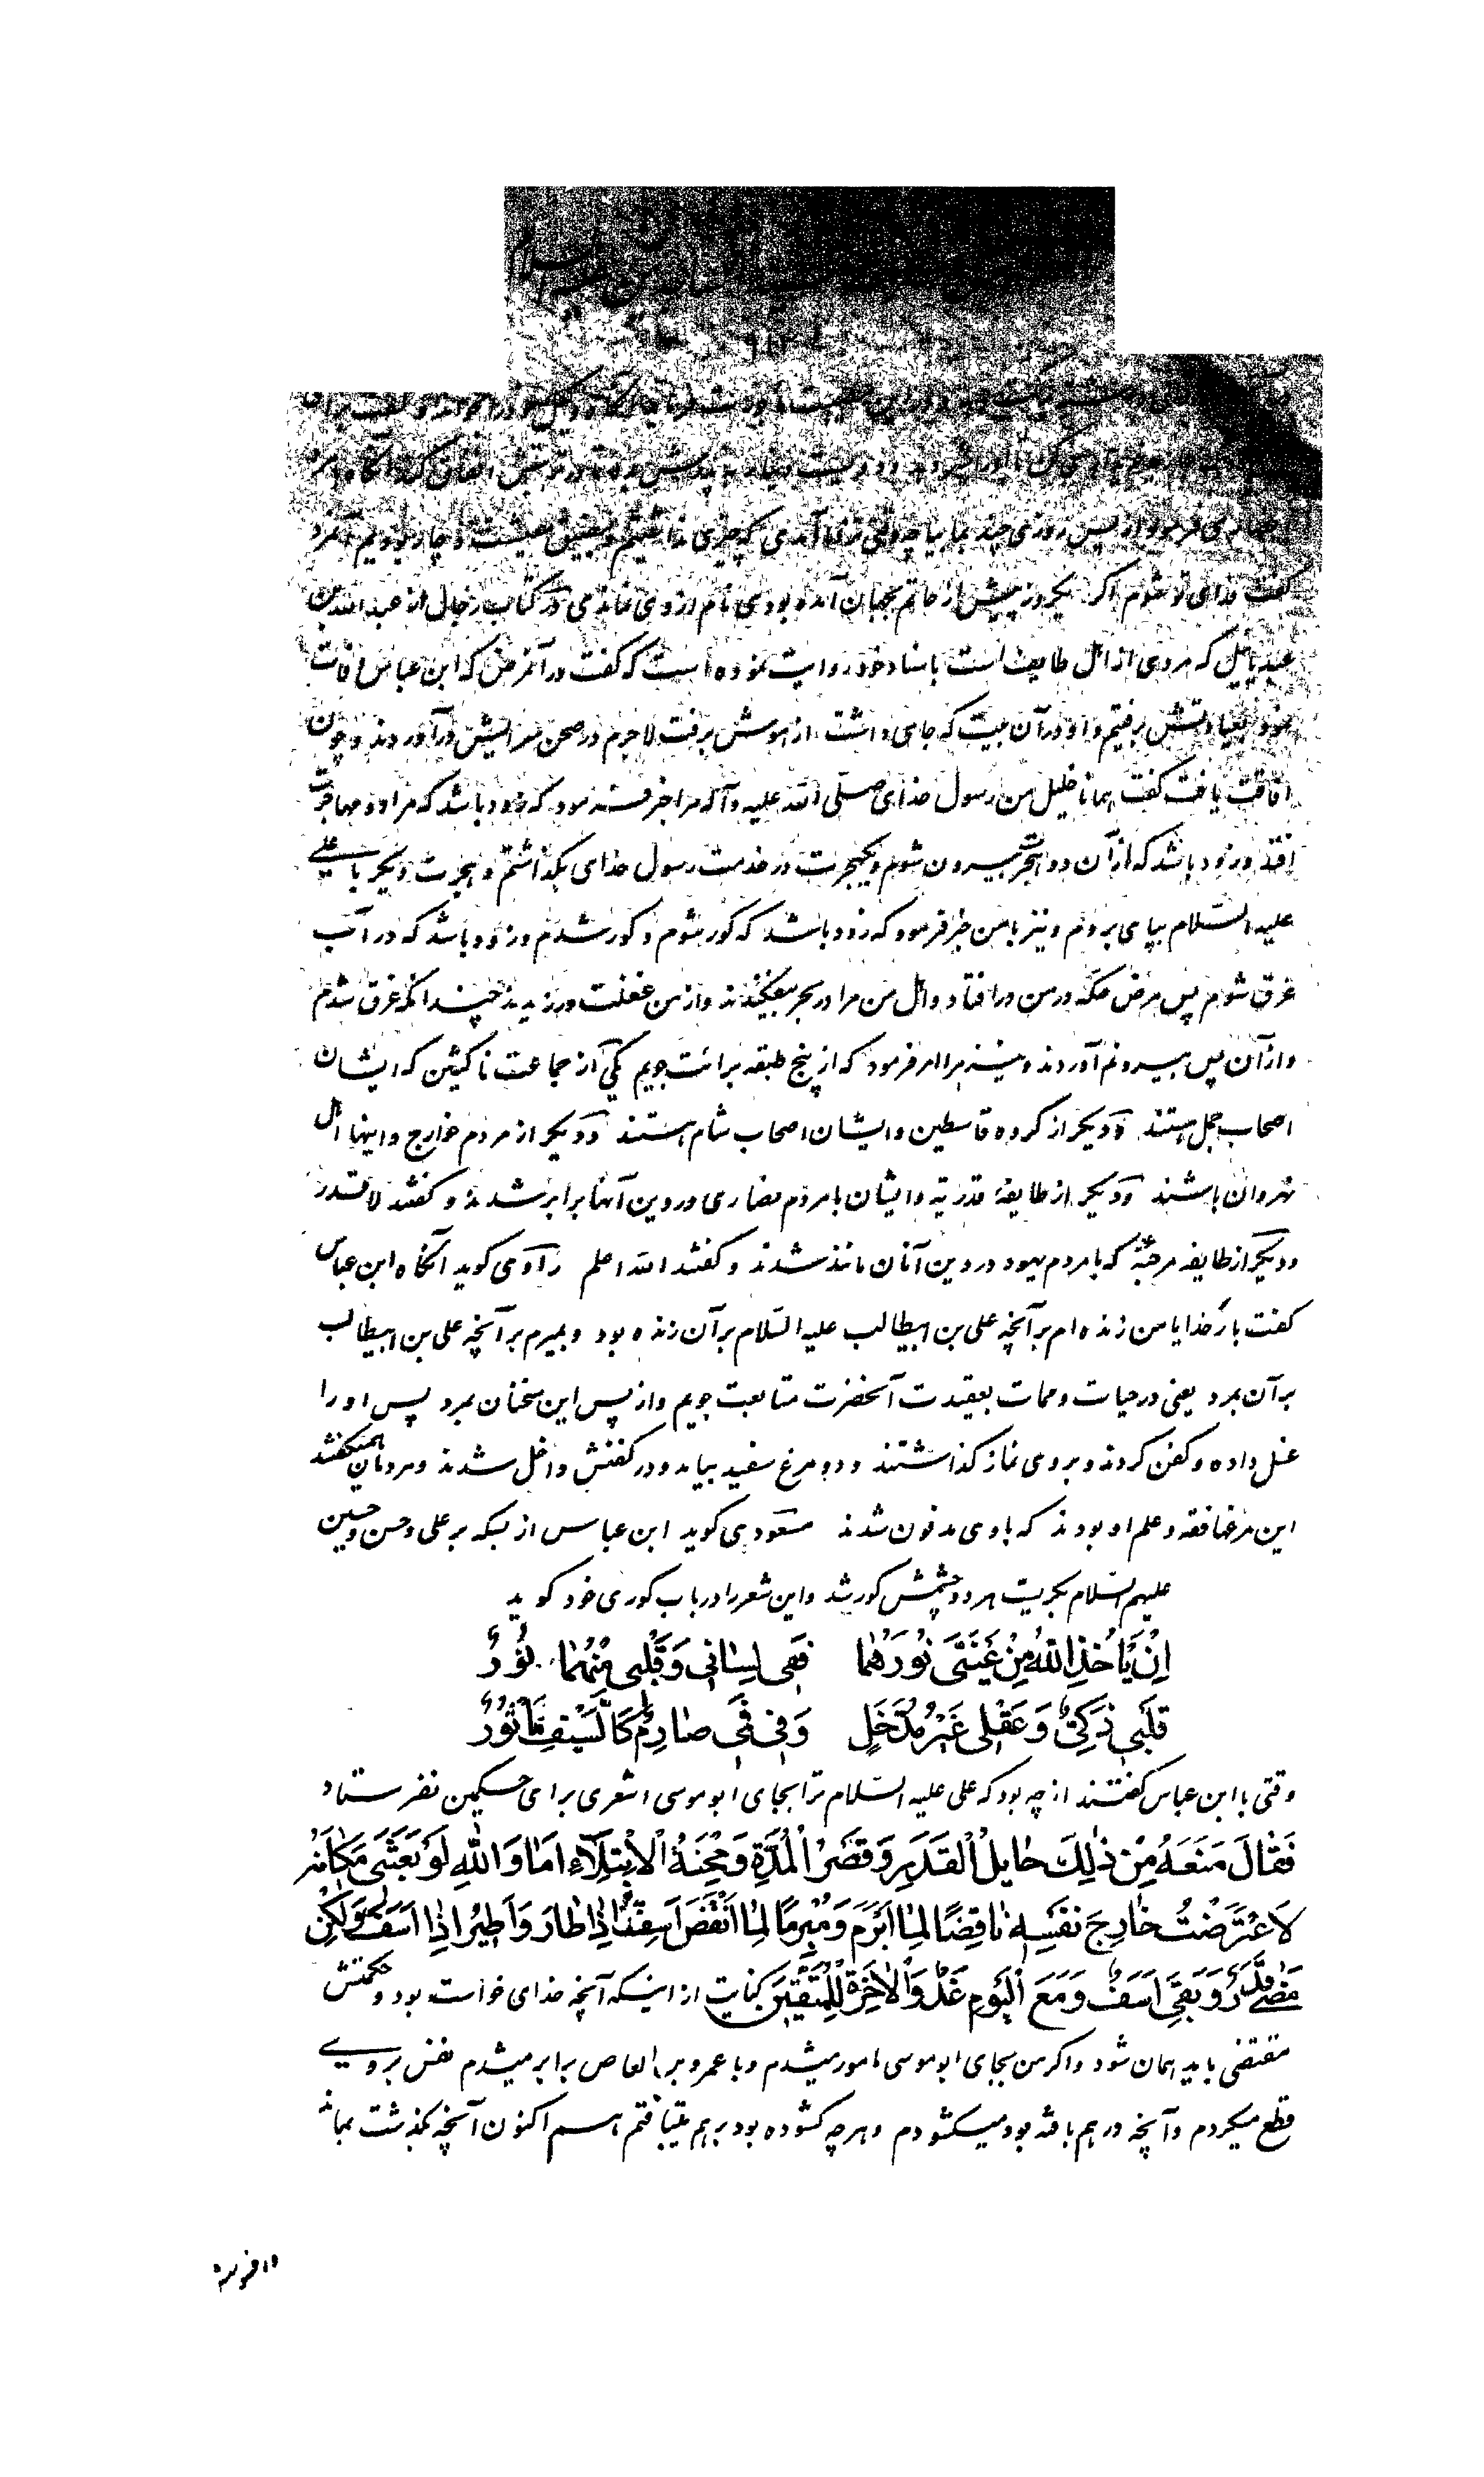 ۹۱۲
گفت فدای تو شوم اگر یکروز پیش از حاتم بجهان آمده بودی نام از وی نماندمی در کتاب رجال از عبد الله بن
عبد یالیل که مردی از اهل طایف است باسناد خود روایت نموده است که گفت در آنمرض که ابن عباس وفات
نمود بعیادتش برفتیم و او در آن بیت که جای داشت از هوش برفت لاجرم در صحن سرایش درآوردند و چون
افاقت یافت گفت همانا خلیل من رسول خدای صلی الله علیه و آله مرا خبر فرمود که زود باشد که مرا دو مهاجرت
افتد و زود باشد که از آن دو هجرت بیرون شوم و یکهجرت در خدمت رسول خدای بگذاشتم و هجرت دیگر با علی
علیه السلام بپای بردم و نیز با من خبر فرمود که زود باشد که کور شوم و کور شدم و زود باشد که در آب
غرق شوم پس مرض حکه در من در افتاد و اهل من مرا در بحر بیفکندند و از من غفلت ورزیدند چندانکه غرق شدم
و از آن پس بیرونم آوردند و نیز مرا امر فرمود که از پنج طبقه برائت جویم یکی از جماعت ناکثین که ایشان
اصحاب جمل هستند و دیگر از گروه قاسطین و ایشان اصحاب شام هستند و دیگر از مردم خوارج و اینها اهل
نهروان باشند و دیگر از طایفه قدریه و ایشان با مردم نصاری در دین آنها برابر شدند و گفتند لا قدر
و دیگر از طایفه مرجئه که با مردم یهود در دین آنان مانند شدند و گفتند الله اعلم راوی گوید آنگاه ابن عباس
گفت بار خدایا من زنده ام بر آنچه علی بن ابیطالب علیه السلام بر آن زنده بود و بمیرم بر آنچه علی بن ابیطالب
بر آن بمرد یعنی در حیات و ممات بعقیدت آنحضرت متابعت جویم و از پس این سخنان بمرد پس او را
غسل داده و کفن کردند و بر وی نماز گذاشتند و دو مرغ سفید بیامد و در کفنش داخل شدند و مردمان همیگفتند
این مرغها فقه و علم او بودند که با وی مدفون شدند مسعودی گوید ابن عباس از بسکه بر علی و حسن و حسین
علیهم السلام بگریست هر دو چشمش کور شد و این شعر را در باب کوری خود گوید
اِنْ یَأْخُذِ اللهُ مِنْ عَیْنَیَّ نُورَهُما فَفی لِسانی وَقَلْبی مِنْهُما نُورٌ
قَلْبی ذَکِیٌّ وَعَقْلی غَیْرُ مُدَّخَلٍ وَفی فَمی صارِمٌ کَالسَّیْفِ مَأْثُورٌ
وقتی با ابن عباس گفتند از چه بود که علی علیه السلام ترا بجای ابو موسی اشعری برای حکمین نفرستاد
فَقالَ مَنَعَهُ مِنْ ذٰلِکَ حایِلُ الْقَدَرِ وَقَصْرُ الْمُدَّةِ وَمِحْنَةُ الْاِبْتِلآءِ اَما وَاللهِ لَوْ بَعَثَنی مَکانَهُ
لَاعْتَرَضْتُ مَخارِجَ نَفَسِهِ ناقِضًا لِما اَبْرَمَ وَمُبْرِمًا لِما اَنْقَضَ اَسِفُّ اِذا طارَ وَاَطیرُ اِذا اَسَفَّ وَلٰکِنْ
مَضٰی قَدَرٌ وَبَقِیَ اَسَفٌ وَمَعَ الْیَوْمِ غَدٌ وَالْاٰخِرَةُ لِلْمُتَّقینَ کنایت از اینکه آنچه خدای خواست بود و حکمتش
مقتضی باید همان شود و اگر من بجای ابو موسی مامور میشدم و با عمرو بن العاص برابر میشدم نفس بر وی
قطع میکردم و آنچه در هم بافته بود میگشودم و هر چه گشوده بود بر هم میتافتم اکنون آنچه گذشت بماند